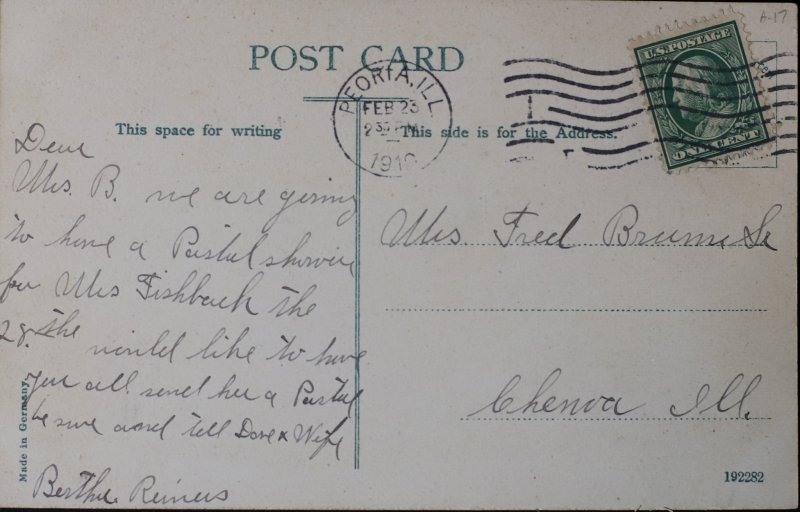 A-17
POST CARD
PEORIA, ILL.
FEB 23
2 30 PM
191
U.S. POSTAGE
ONE CENT
This space for writing
This side is for the Address.
Dear
Mrs. B. we are going
to have a Postal showing
for Mrs Fishback the
28. The would like to have
you all send her a Postal
be sure and tell Dave & Wife
Bertha Reiners
Mrs. Fred Brum Sr
Chenoa Ill.
Made in Germany.
192282